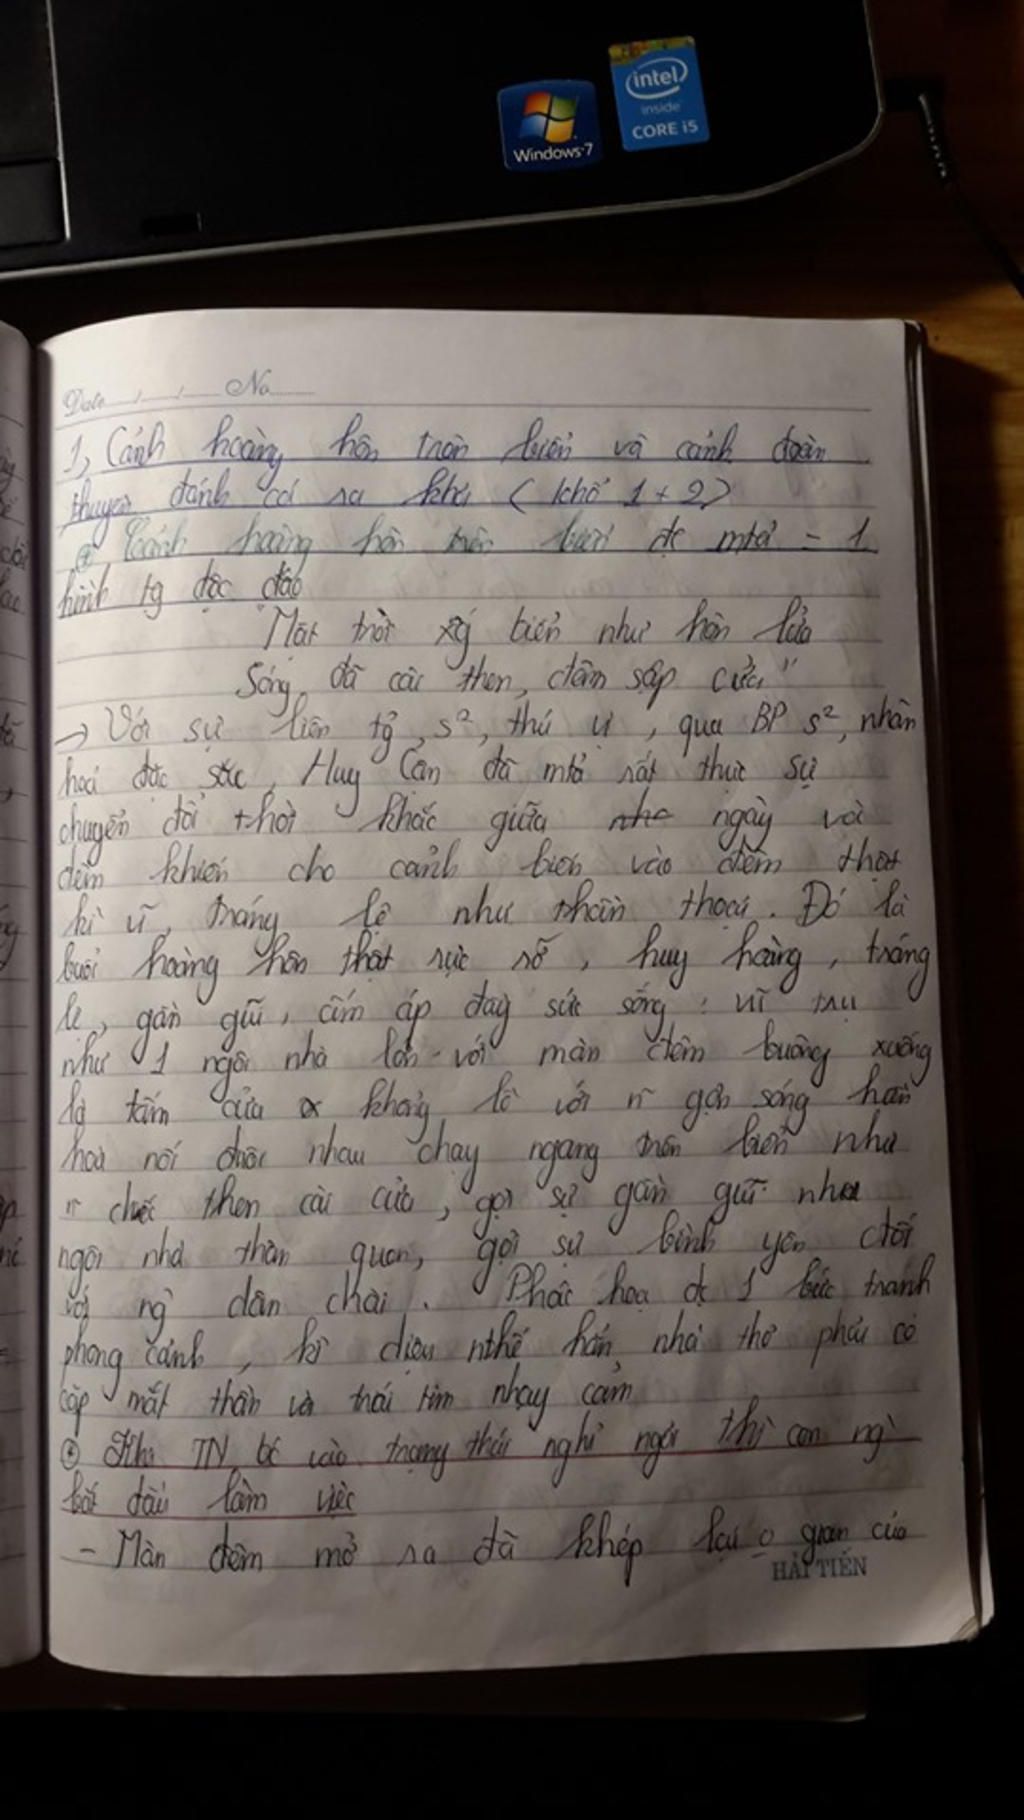 intel
inside
CORE i5
Windows 7
Date No
1, Cảnh hoàng hôn trên biển và cảnh đoàn
thuyền đánh cá ra khơi (khổ 1 + 2)
* Cảnh hoàng hôn trên biển đc mtả = 1
hình tg độc đáo
"Mặt trời xg biển như hòn lửa
Sóng đã cài then, đêm sập cửa"
→ Với sự liên tg, s², thú vị, qua BP s², nhân
hoá đặc sắc, Huy Cận đã mtả rất thực sự
chuyển đổi thời khắc giữa ngày và
đêm khiến cho cảnh biển vào đêm thật
kì vĩ, tráng lệ như thần thoại. Đó là
buổi hoàng hôn thật rực rỡ, huy hoàng, tráng
lệ, gần gũi, ấm áp đầy sức sống: vũ trụ
như 1 ngôi nhà lớn với màn đêm buông xuống
là tấm cửa khổng lồ với n~ gợn sóng hiền
hoà nối đuôi nhau chạy ngang trên biển như
n~ chiếc then cài cửa, gợi sự gần gũi như
ngôi nhà thân quen, gợi sự bình yên đối
với ng` dân chài. Phác hoạ đc 1 bức tranh
phong cảnh, kì diệu nthế hẳn nhà thơ phải có
cặp mắt thần và trái tim nhạy cảm
* Khi TN bđ vào trạng thái nghỉ ngơi thì con ng`
bắt đầu làm việc
- Màn đêm mở ra đã khép lại o gian của
HẢI TIẾN